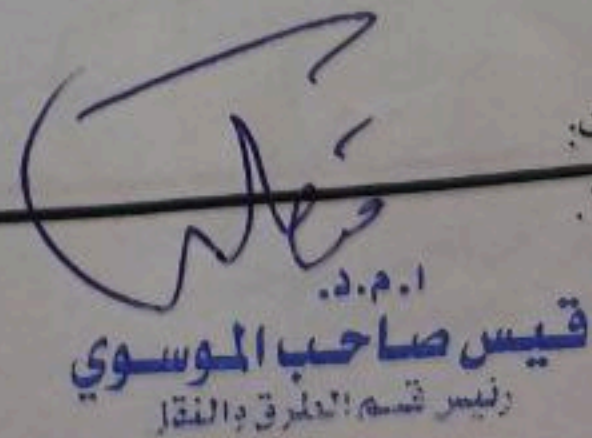 ا.م.د.
قيس صاحب الموسوي
رئيس قسم الطرق والنقل